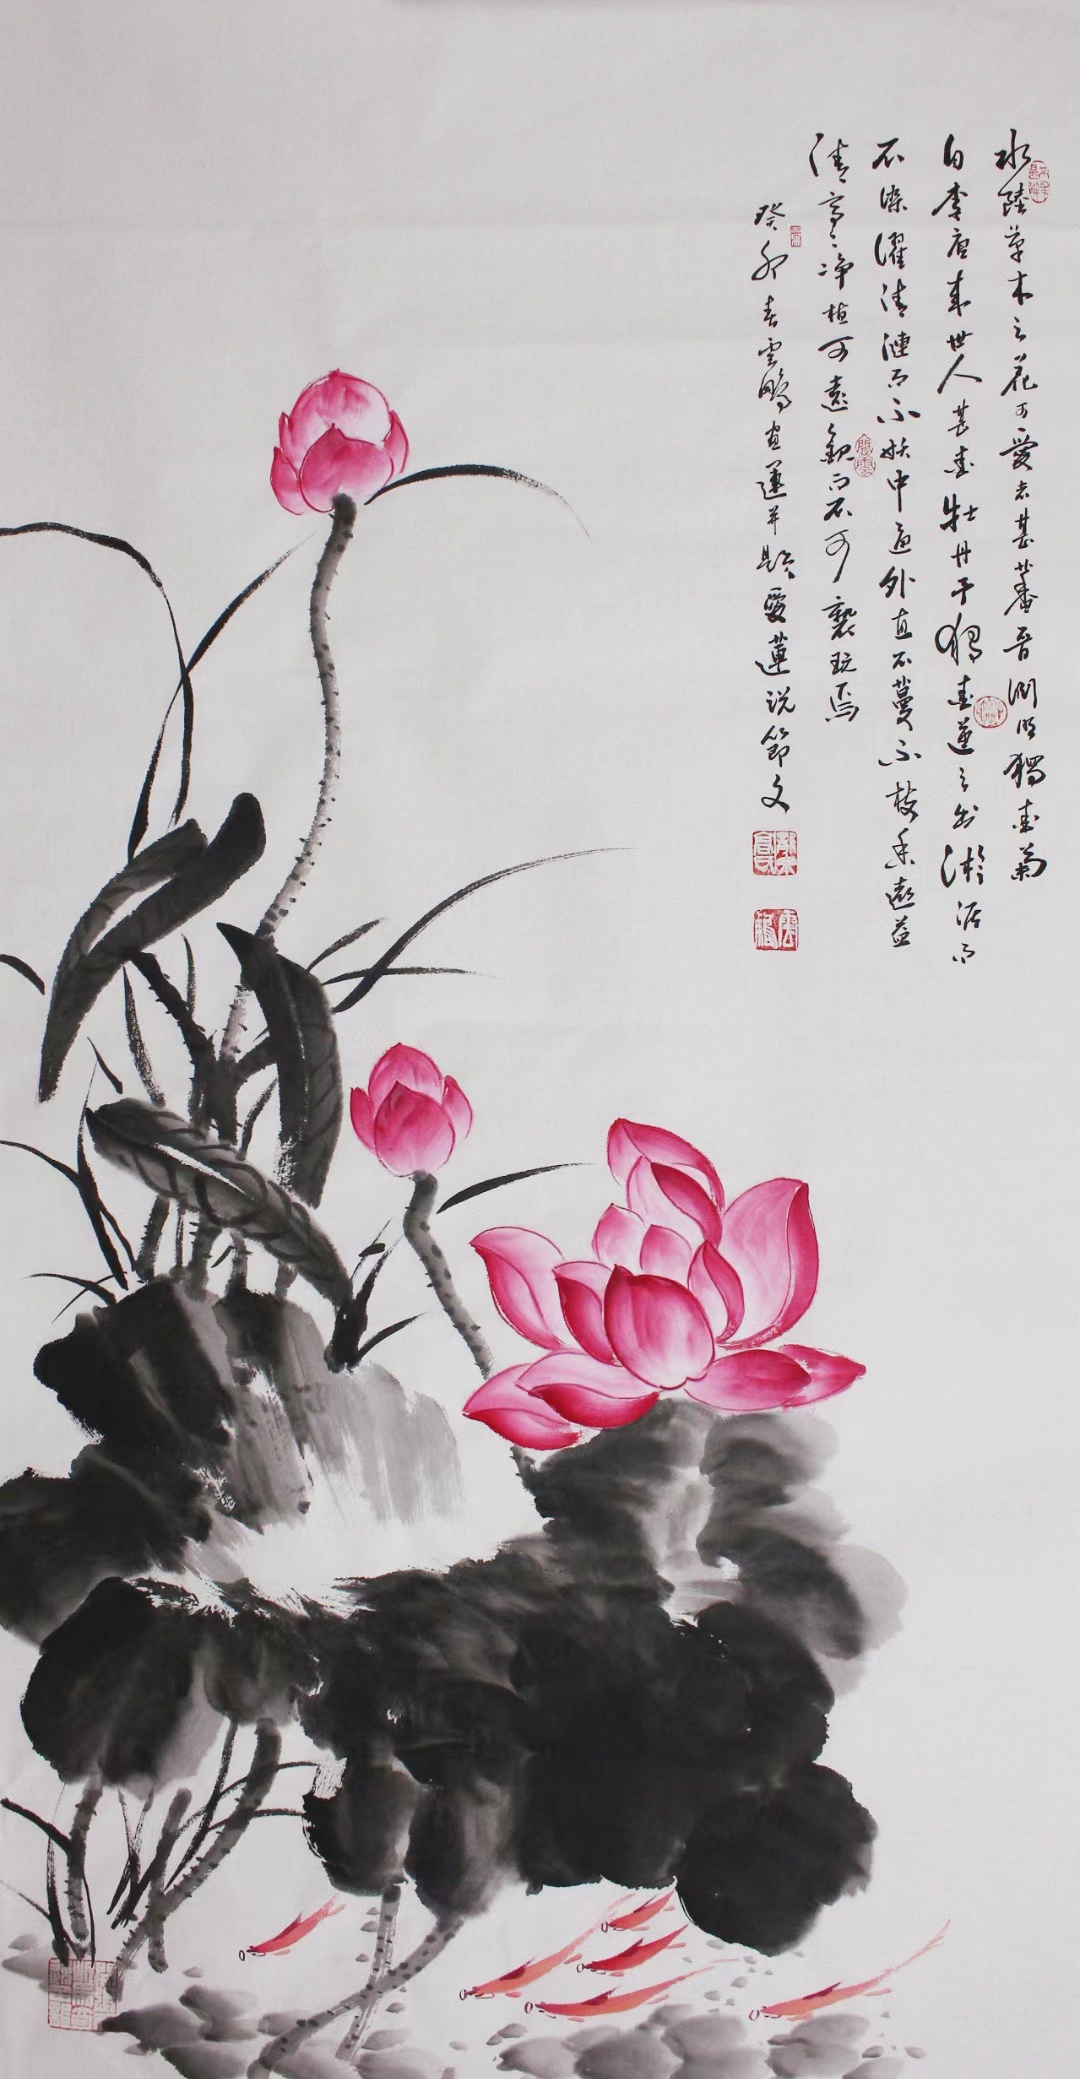 水陸草木之花可愛者甚蕃晋渊明獨爱菊
自李唐来世人甚爱牡丹予獨爱蓮之出淤泥而
不染濯清漣而不妖中通外直不蔓不枝香遠益
清亭亭净植可遠觀而不可褻玩焉
癸卯春雲鵬畫蓮并題愛蓮说節文